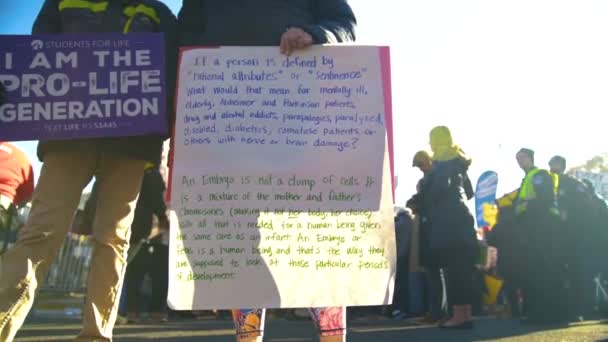 STUDENTS FOR LIFE
I AM THE
PRO-LIFE
GENERATION
TEXT LIFE TO 53445
If a person is defined by
"rational attributes" or "sentinence"
what would that mean for mentally ill,
elderly, Alzheimer and Parkinson patients,
drug and alcohol addicts, parapalegics, paralyzed,
disabled, diabetics, comatose patients or
others with nerve or brain damage?
An Embryo is not a clump of cells. It
is a mixture of the mother and father's
chromosomes (making it not her body, her choice)
with all that is needed for a human being given
the same care as an infant. An Embryo or
fetus is a human being and that's the way they
are supposed to look at those particular periods
of development.